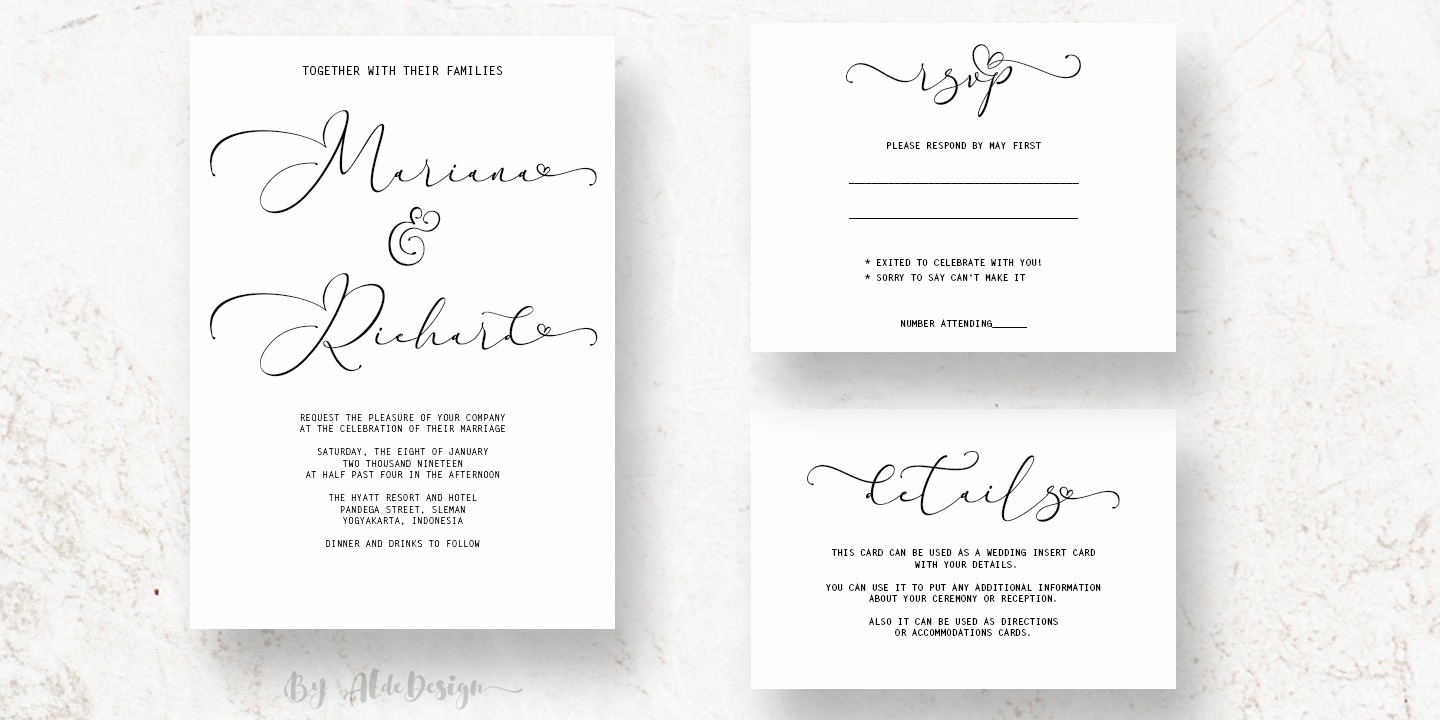 TOGETHER WITH THEIR FAMILIES
Mariana
&
Richard
REQUEST THE PLEASURE OF YOUR COMPANY
AT THE CELEBRATION OF THEIR MARRIAGE
SATURDAY, THE EIGHT OF JANUARY
TWO THOUSAND NINETEEN
AT HALF PAST FOUR IN THE AFTERNOON
THE HYATT RESORT AND HOTEL
PANDEGA STREET, SLEMAN
YOGYAKARTA, INDONESIA
DINNER AND DRINKS TO FOLLOW
By AldeDesign
rsvp
PLEASE RESPOND BY MAY FIRST
* EXITED TO CELEBRATE WITH YOU!
* SORRY TO SAY CAN'T MAKE IT
NUMBER ATTENDING______
details
THIS CARD CAN BE USED AS A WEDDING INSERT CARD
WITH YOUR DETAILS.
YOU CAN USE IT TO PUT ANY ADDITIONAL INFORMATION
ABOUT YOUR CEREMONY OR RECEPTION.
ALSO IT CAN BE USED AS DIRECTIONS
OR ACCOMMODATIONS CARDS.